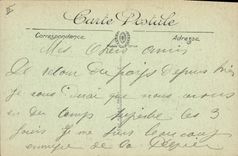 Carte Postale
Correspondance Adresse
Mes Chers Amis
De retour du pays depuis hier
je vous dirai que nous avons
eu du temps superbe les 3
jours je me suis beaucoup
de la